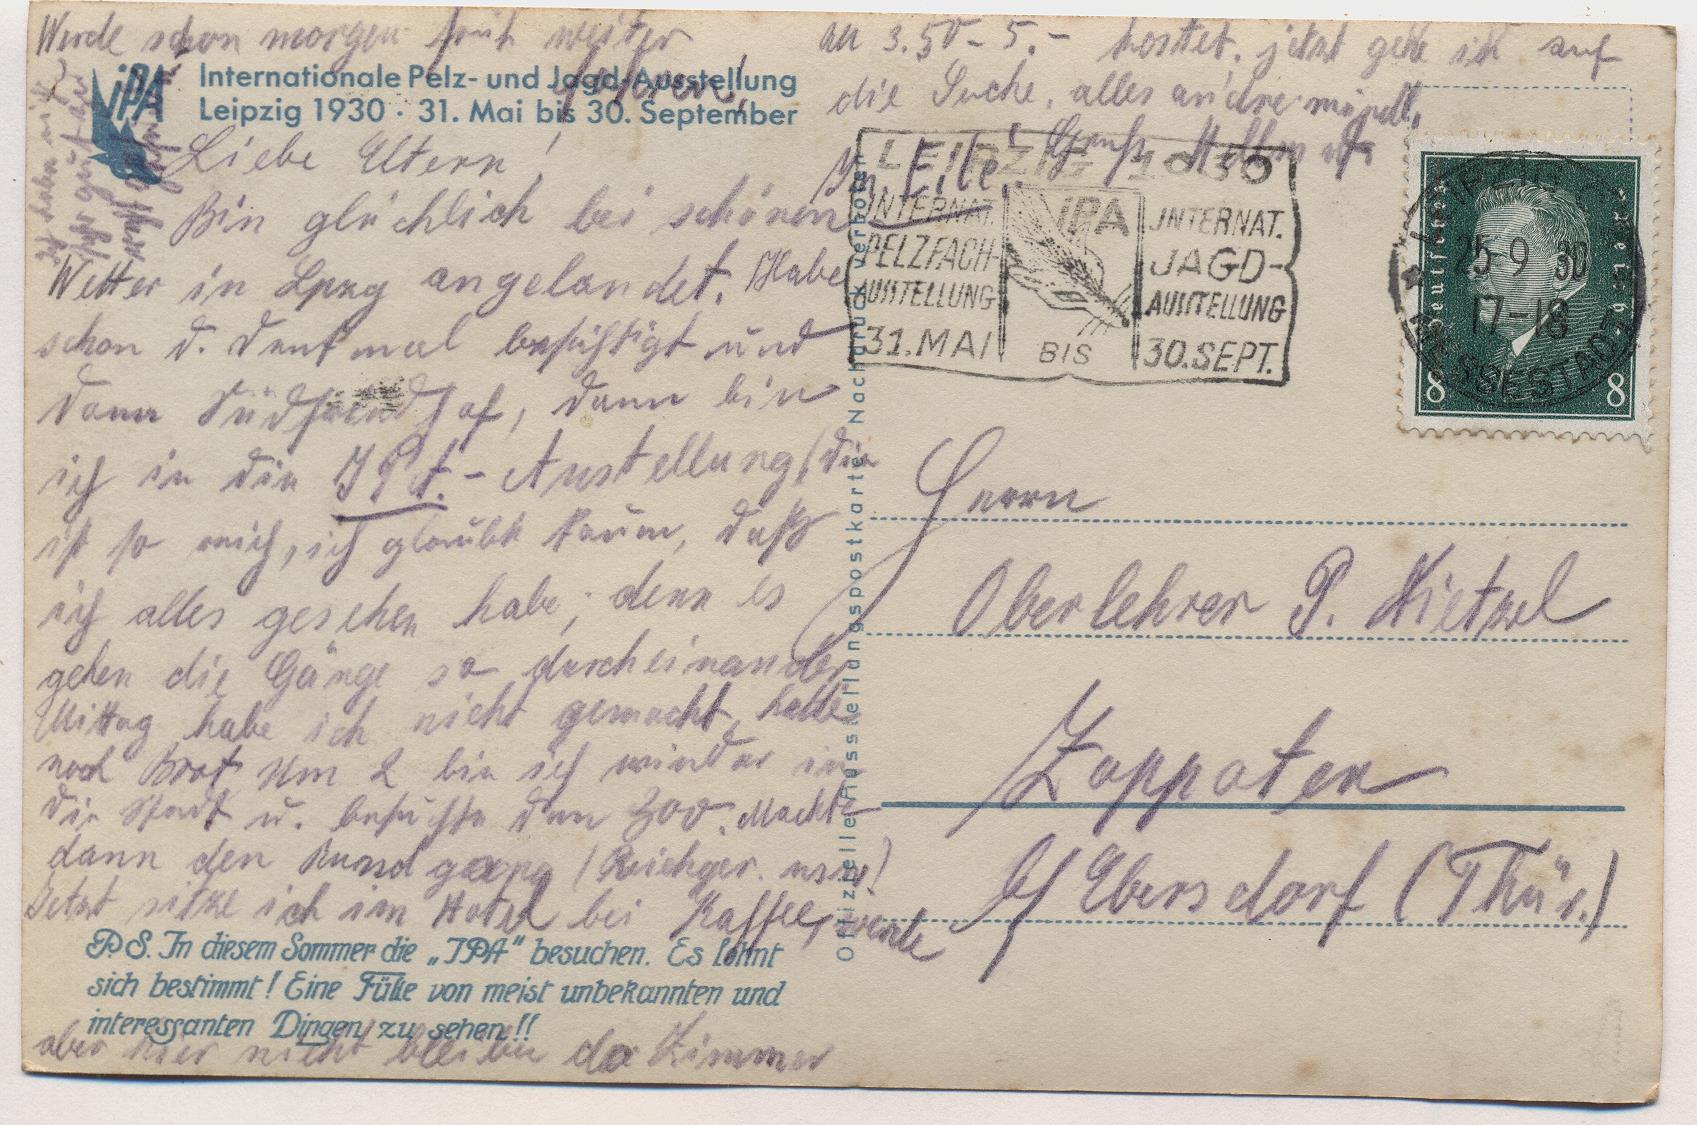 Werde schon morgen früh weiter
fahren!
iPA
Internationale Pelz- und Jagd-Ausstellung
Leipzig 1930 · 31. Mai bis 30. September
Liebe Eltern!
Bin glücklich bei schönem
Wetter in Lpzg angelandet. Habe
schon d. Denkmal besichtigt und
dann Südfriedhof, dann bin
ich in die IPA.-Austellung, die
ist so reich, ich glaube kaum, daß
ich alles gesehen habe; denn es
gehen die Gänge so durcheinander
Mittag habe ich nicht gemacht, hatte
noch Brot. Um 2 bin ich wieder in
die Stadt u. besuchte den Zoo. Machte
dann den Rundgang (Reichger. usw.)
Jetzt sitze ich im Hotel bei Kaffee, werde
P.S. In diesem Sommer die „IPA" besuchen. Es lohnt
sich bestimmt! Eine Fülle von meist unbekannten und
interessanten Dingen zu sehen!!
aber hier nicht bleiben da Zimmer
an 3.50 - 5.- kostet. jetzt gehe ich auf
die Suche, alles andre mündl.
In Eile! Gruß
Offizielle Ausstellungspostkarte Nachdruck verboten
LEIPZIG 1930
INTERNAT.
PELZFACH-
AUSSTELLUNG
31. MAI
iPA
BIS
JNTERNAT.
JAGD-
AUSSTELLUNG
30. SEPT.
LEIPZIG
25-9 30
17-18
MESSESTADT
Deutsches Reich
8 8
Herrn
Oberlehrer P. Hietzel
Zoppoten
b/ Ebersdorf (Thür.)